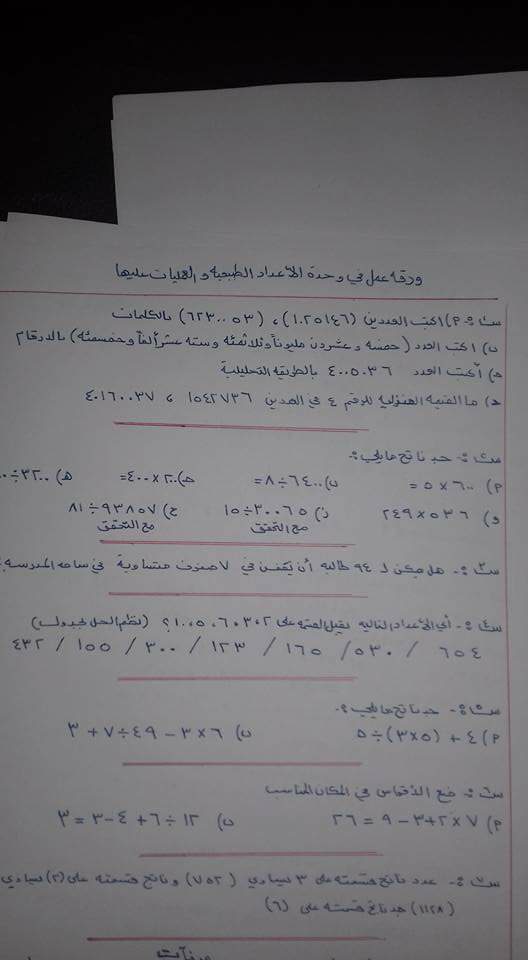 ورقة عمل في وحدة الأعداد الطبيعية و العمليات عليها
س١:- أ) اكتب العددين (١٠٢٥١٤٦) ، (٦٢٣٠٠٥٣) بالكلمات
ب) اكتب العدد (خمسة و عشرون مليوناً وثلاثمئة وستة عشر ألفاً وخمسمئة) بالأرقام
ج) أكتب العدد ٤٠٠٥٠٣٦ بالطريقة التحليلية
د) ما القيمة المنزلية للرقم ٤ في العددين ١٥٤٢٧٣٦ ، ٤٠١٦٠٠٣٧
س٢:- جد ناتج ما يلي :-
أ) ٦٠٠ × ٥ =
ب) ٦٤٠٠ ÷ ٨ =
ج) ٢٠٠ × ٤٠٠ =
هـ) ٣٢٠٠ ÷
و) ٥٣٦ × ٢٤٩
ز) ٣٠٠٦٥ ÷ ١٥
ح) ٩٣٨٥٧ ÷ ٨١
مع التحقق
مع التحقق
س٣:- هل يمكن لـ ٩٤ طالبة أن يقفن في ٧ صفوف متساوية في ساحة المدرسة
س٤:- أي الأعداد التالية تقبل القسمة على ٢ ، ٣ ، ٦ ، ٥ ، ١٠ ؟ (نظم الحل بجدول)
٦٥٤ / ٥٣٠ / ١٦٥ / ١٢٣ / ٣٠٠ / ١٥٥ / ٤٣٢
س٥:- جد ناتج ما يلي :-
أ) ٤ + (٥ × ٣) ÷ ٥
ب) ٦ × ٣ − ٤٩ ÷ ٧ + ٣
س٦:- ضع الأقواس في المكان المناسب
أ) ٧ × ٢ + ٣ − ٩ = ٢٦
ب) ١٢ ÷ ٦ + ٤ − ٣ = ٣
س٧:- عدد ناتج قسمته على ٣ يساوي (٧٥٢) و ناتج قسمته على (٢) يساوي
(١١٢٨) جد ناتج قسمته على (٦)